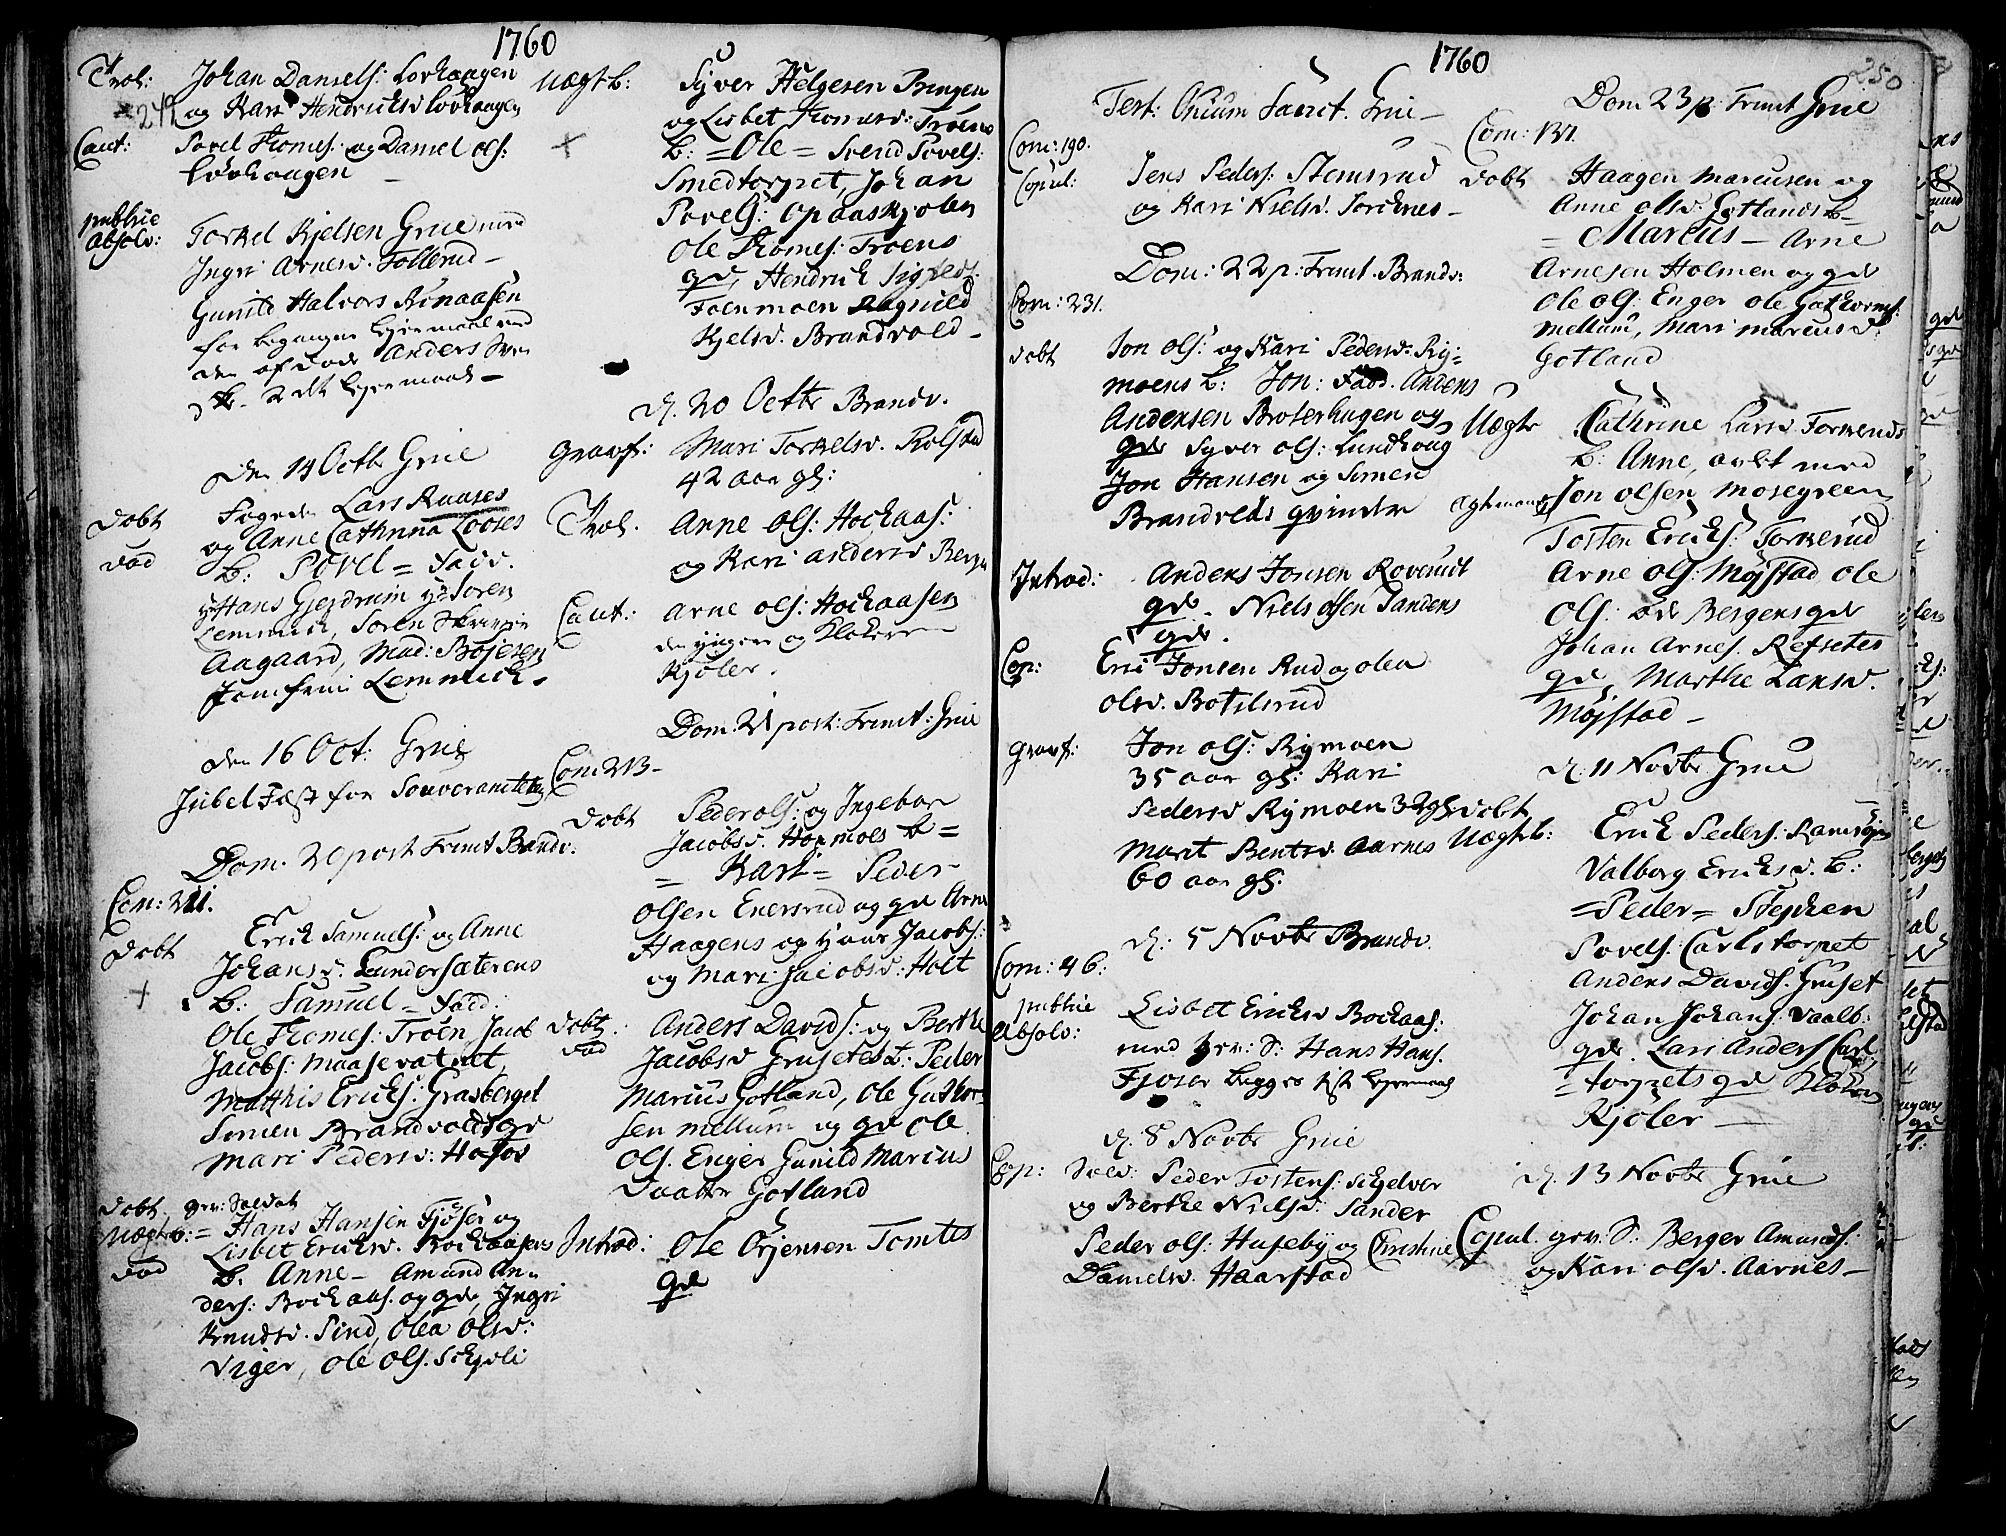 1760
Trol: Johan Danielss: Lovhaagen
249 og Kari Hendricksd Lovhaagen
Caut: Povel Thomes: og Daniel Ols:
Lövhaagen
publice
absolv: Torkel Kjelsen Grue med
Ingri Arnesd. Tollerud
Gunild Halvors Rönaasen
for begangne Lejermaal med
den af döde Anders
2 det Lejermaal
den 14 Octb Grue
döbt Fogden Lars Ruuses
död og Anne Cathrina Looses
b: Povel = Fadd.
Hr Hans Gjerdrum Hr Sören
Lemmich, Sören Skriver
Aagaard, Mad: Böjesen
Jomfrue Lemmich
den 16 Oct: Grue
Jubel Fæst for Souverainiteten
Dom. 20 post Trinit Brandv.
Com: 221.
döbt Erick Samuels: og Anne
Johansd. Lundersæterens
+ b: Samuel = Fadd:
Ole Thomes: Troen, Jacob
Jacobs: Maasevatnet
Matthis Ericks: Grasberget
Simen Brandvolds qv
Mari Pedersd: Hofos
döbt gev: Soldat
Uægteb: = Hans Hansen Fjöser og
död Lisbet Ericksd. Bockaasens
b. Anne - Amund An-
ders: Bockaas. og qv, Ingri
Knudsd. Sind, Olea Olsd:
Viger, Ole Ols. Schjeli
Uægt b: Syver Helgesen Bringen
og Lisbet Thomesd: Troens
+ b: = Ole = Svend Povels:
Smedtorpet, Johan
Povels: Opaaskjolen
Ole Thomes: Troens
qv, Hendrick Sigfreds:
Foenmoen Ragnild
Kjelsd. Brandvold
d. 20 Octb Brandv.
Gravf: Mari Torkelsd. Rolstad
42 aar gl:
Trol. Anne Ols: Hockaas:
og Kari Andersd Berge
Caut: Arne Ols: Hockaasen
den yngere og Klokeren
Kjöler.
Dom: 21 post: Trinit: Grue
Com 213
döbt Peder Ols: og Ingebor
Jacobsd. Hornmoes b =
= Kari = Peder
Olsen Enersrud og qv Arne
Haagens og Hans Jacobs:
og Mari Jacobsd: Holt
döbt Anders Davids: og Berthe
död Jacobsd Grusetes b: Peder
Marcus Gotland, Ole Guthor-
sen Mellum og qv Ole
Ols. Enger Gunild Marcus
Daatter Gotland
Introd: Ole Örjensen Tomtes
qv
1760
250
Fest: Omium Sanct. Grue
Com: 190.
Copul: Jens Peders: Stemsrud
og Kari Nielsd. Torcknes
Dom: 22 p: Trinit. Brandv:
Com: 231.
döbt Jon Ols: og Kari Pedersd: Ryj=
moens b: Jon: Fadd. Anders
Andersen Broterhugen og
qv Syver Ols: Lundhoug
Jon Hansen og Simen
Brandvolds qvinder
Introd: Anders Jonsen Roverud
qv. Niels Olsen Sandens
qv.
Cop: Eric Jonsen Rud og Olea
Olsd. Botilsrud
Gravf: Jon Ols: Rymoen
35 aar gl: Kari
Pedersd Rymoen 32 gl
Marit Bentsd. Aarnes
60 aar gl.
d: 5 Novb Brandv.
Com: 46:
publice
absolv: Lisbet Ericksd Bockaas:
med gev: S: Hans Hans.
Fjöser begges 1ste Lejermaal
d. 8 Novb Grue
Cop: Sold: Peder Tostens: Schjelver
og Berthe Nielsd: Sander
Peder Ols: Huseby og Christine
Danielsd. Haarstad
Dom 23 p: Trinit Grue
Com: 137.
döbt Haagen Marcusen og
Anne Olsd: Gotlands b=
= Marcus - Arne
Arnesen Holmen og qv
Ole Ols: Enger Ole Gothorms:
Mellum, Mari Marcusd
Gotland
Uægte Cathrine Larsd Torkerud
b: Anne, avlet med
Jon Olsen Mosegreen
Tosten Ericks: Torkerud
Arne Ols: Möjstad Ole
Ols: Bergens qv
Johan Arnes. Refsetes
qv, Marthe Larsd.
Möjstad
d: 11 Novb Grue
döbt
Uægte b: Erick Peders:
Valborg Ericksd. b:
= Peder = Stephen
Povels: Carlstorpet
Anders Davids. Gruset
Johan Johans: Vaalb:
qv. Lars Anders Carl
= torpets qv Kloker
Kjöler
d. 13 Novb Grue
Copul. gev: S: Berger Amunds:
og Kari Olsd. Aarnes